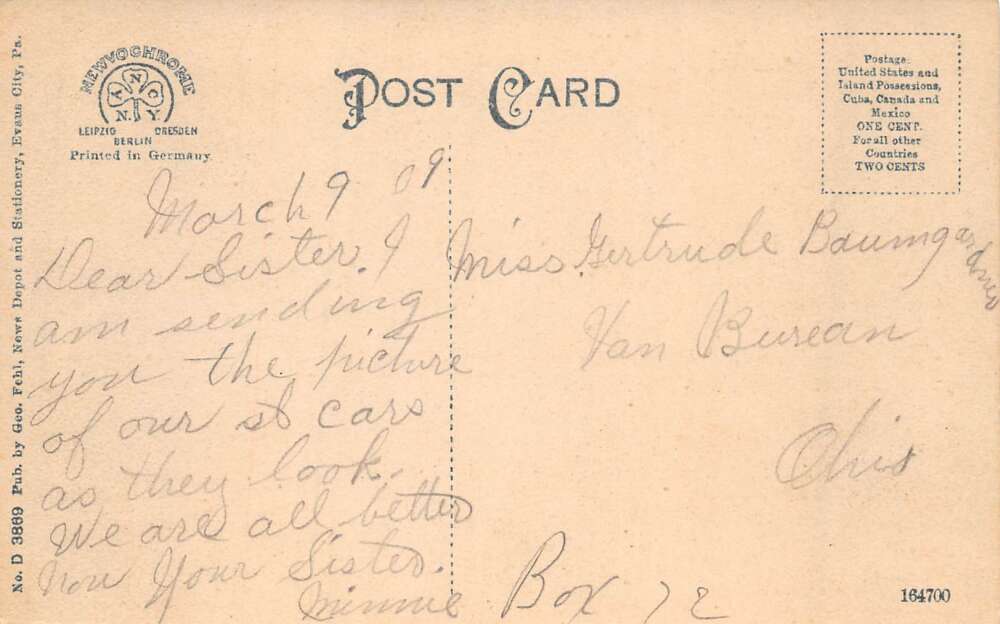 No. D 3869 Pub. by Geo. Fehl, News Depot and Stationery, Evans City, Pa.
NEWVOCHROME
A N C
N. Y.
LEIPZIG DRESDEN
BERLIN
Printed in Germany.
POST CARD
Postage:
United States and
Island Possessions,
Cuba, Canada and
Mexico
ONE CENT.
For all other
Countries
TWO CENTS
March 9 09
Dear Sister. I
am sending
you the picture
of our st cars
as they look.
We are all better
now Your Sister.
Minnie
Miss. Gertrude Baumgardner
Van Burean
Ohio
Box 72
164700